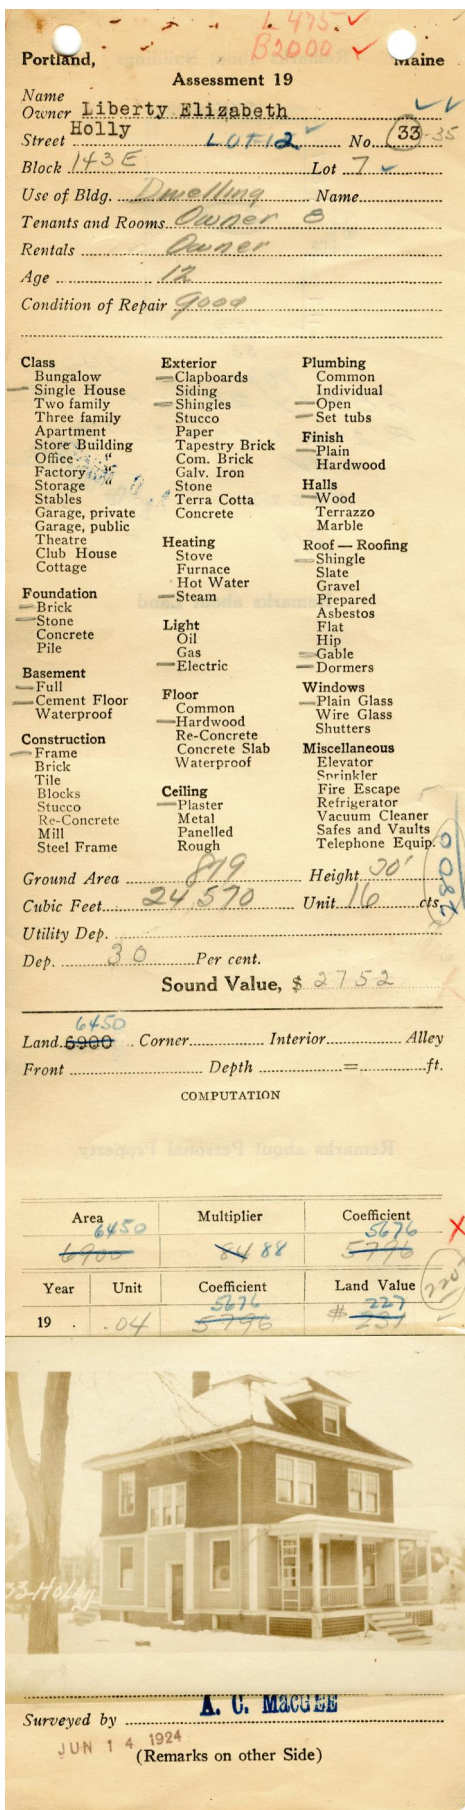 L 475 ✓
B 2000 ✓
Portland, Maine
Assessment 19
Name
Owner Liberty Elizabeth ✓✓
Street Holly LOT 12 ✓ No. 33-35
Block 143 E Lot 7 ✓
Use of Bldg. Dwelling Name
Tenants and Rooms Owner 8
Rentals Owner
Age 12
Condition of Repair Good
Class
Bungalow
Single House
Two family
Three family
Apartment
Store Building
Office "
Factory "
Storage
Stables
Garage, private
Garage, public
Theatre
Club House
Cottage
Foundation
Brick
Stone
Concrete
Pile
Basement
Full
Cement Floor
Waterproof
Construction
Frame
Brick
Tile
Blocks
Stucco
Re-Concrete
Mill
Steel Frame
Exterior
Clapboards
Siding
Shingles
Stucco
Paper
Tapestry Brick
Com. Brick
Galv. Iron
Stone
Terra Cotta
Concrete
Heating
Stove
Furnace
Hot Water
Steam
Light
Oil
Gas
Electric
Floor
Common
Hardwood
Re-Concrete
Concrete Slab
Waterproof
Ceiling
Plaster
Metal
Panelled
Rough
Plumbing
Common
Individual
Open
Set tubs
Finish
Plain
Hardwood
Halls
Wood
Terrazzo
Marble
Roof — Roofing
Shingle
Slate
Gravel
Prepared
Asbestos
Flat
Hip
Gable
Dormers
Windows
Plain Glass
Wire Glass
Shutters
Miscellaneous
Elevator
Sprinkler
Fire Escape
Refrigerator
Vacuum Cleaner
Safes and Vaults
Telephone Equip.
Ground Area 819 Height 30'
Cubic Feet 24,570 Unit 16 cts.
2800
Utility Dep.
Dep. 30 Per cent.
Sound Value, $ 2752
6450
Land 6900 Corner Interior Alley
Front Depth = ft.
COMPUTATION
Area Multiplier Coefficient
6450 5676
6900 84 88 5796
Year Unit Coefficient Land Value
5676 227
19 .04 5796 # 231
225
33-Holly
Surveyed by A. C. MacGEE
JUN 14 1924
(Remarks on other Side)